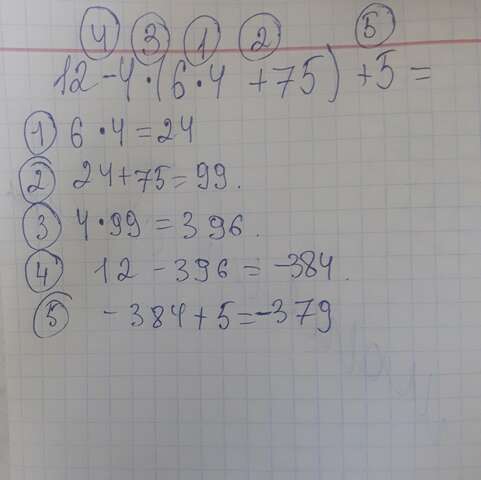 4 3 1 2 5
12-4·(6·4 +75)+5=
1 6·4=24
2 24+75=99.
3 4·99=396.
4 12-396=-384.
5 -384+5=-379